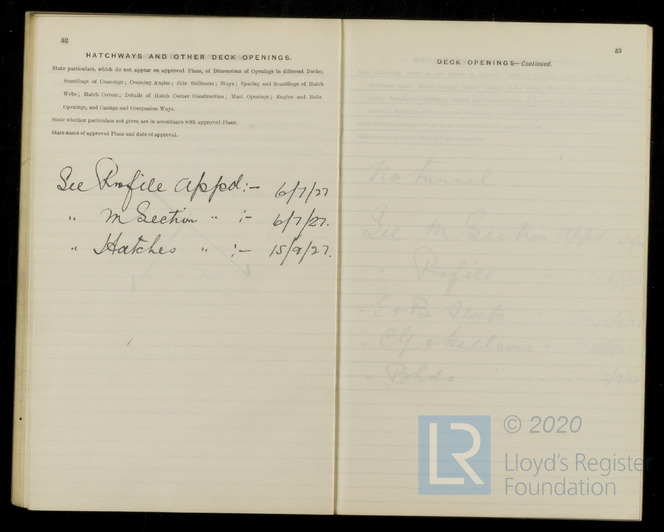 52
HATCHWAYS AND OTHER DECK OPENINGS.
State particulars, which do not appear on approved Plans, of Dimensions of Openings in different Decks;
Scantlings of Coamings; Coaming Angles; Side Stiffeners; Stays; Spacing and Scantlings of Hatch
Webs; Hatch Covers; Details of Hatch Corner Construction; Mast Openings; Engine and Boiler
Openings, and Casings and Companion Ways.
State whether particulars not given are in accordance with approved Plans.
State name of approved Plans and date of approval.
See Profile Appd:- 6/7/27
" M Section " :- 6/7/27.
" Hatches " :- 15/9/27.
53
DECK OPENINGS—Continued.
No tunnel
See M Section Appd
" Profile "
© 2020
LR
Lloyd's Register
Foundation